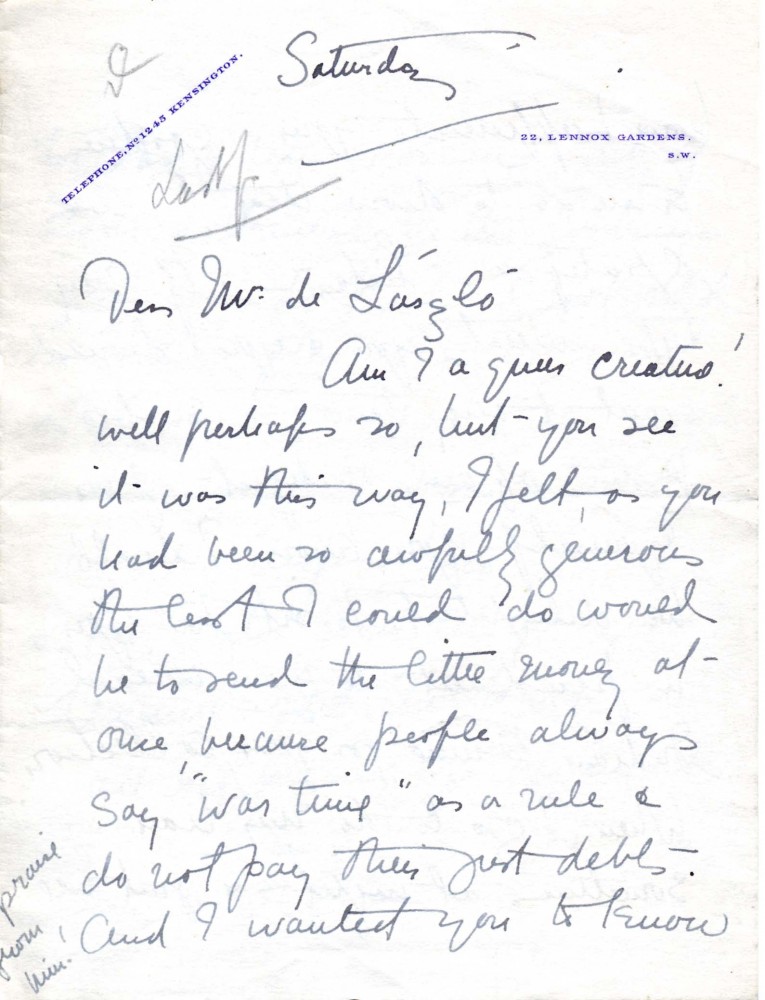 Saturday
TELEPHONE, No 1245 KENSINGTON.
22, LENNOX GARDENS.
S.W.
Dear Mr. de László
Am I a queer creature!
well perhaps so, but you see
it was this way, I felt, as you
had been so awfully generous
the least I could do would
be to send the little money at
once, because people always
say "war time" as a rule &
do not pay their just debts.
And I wanted you to know
praise
from
him!